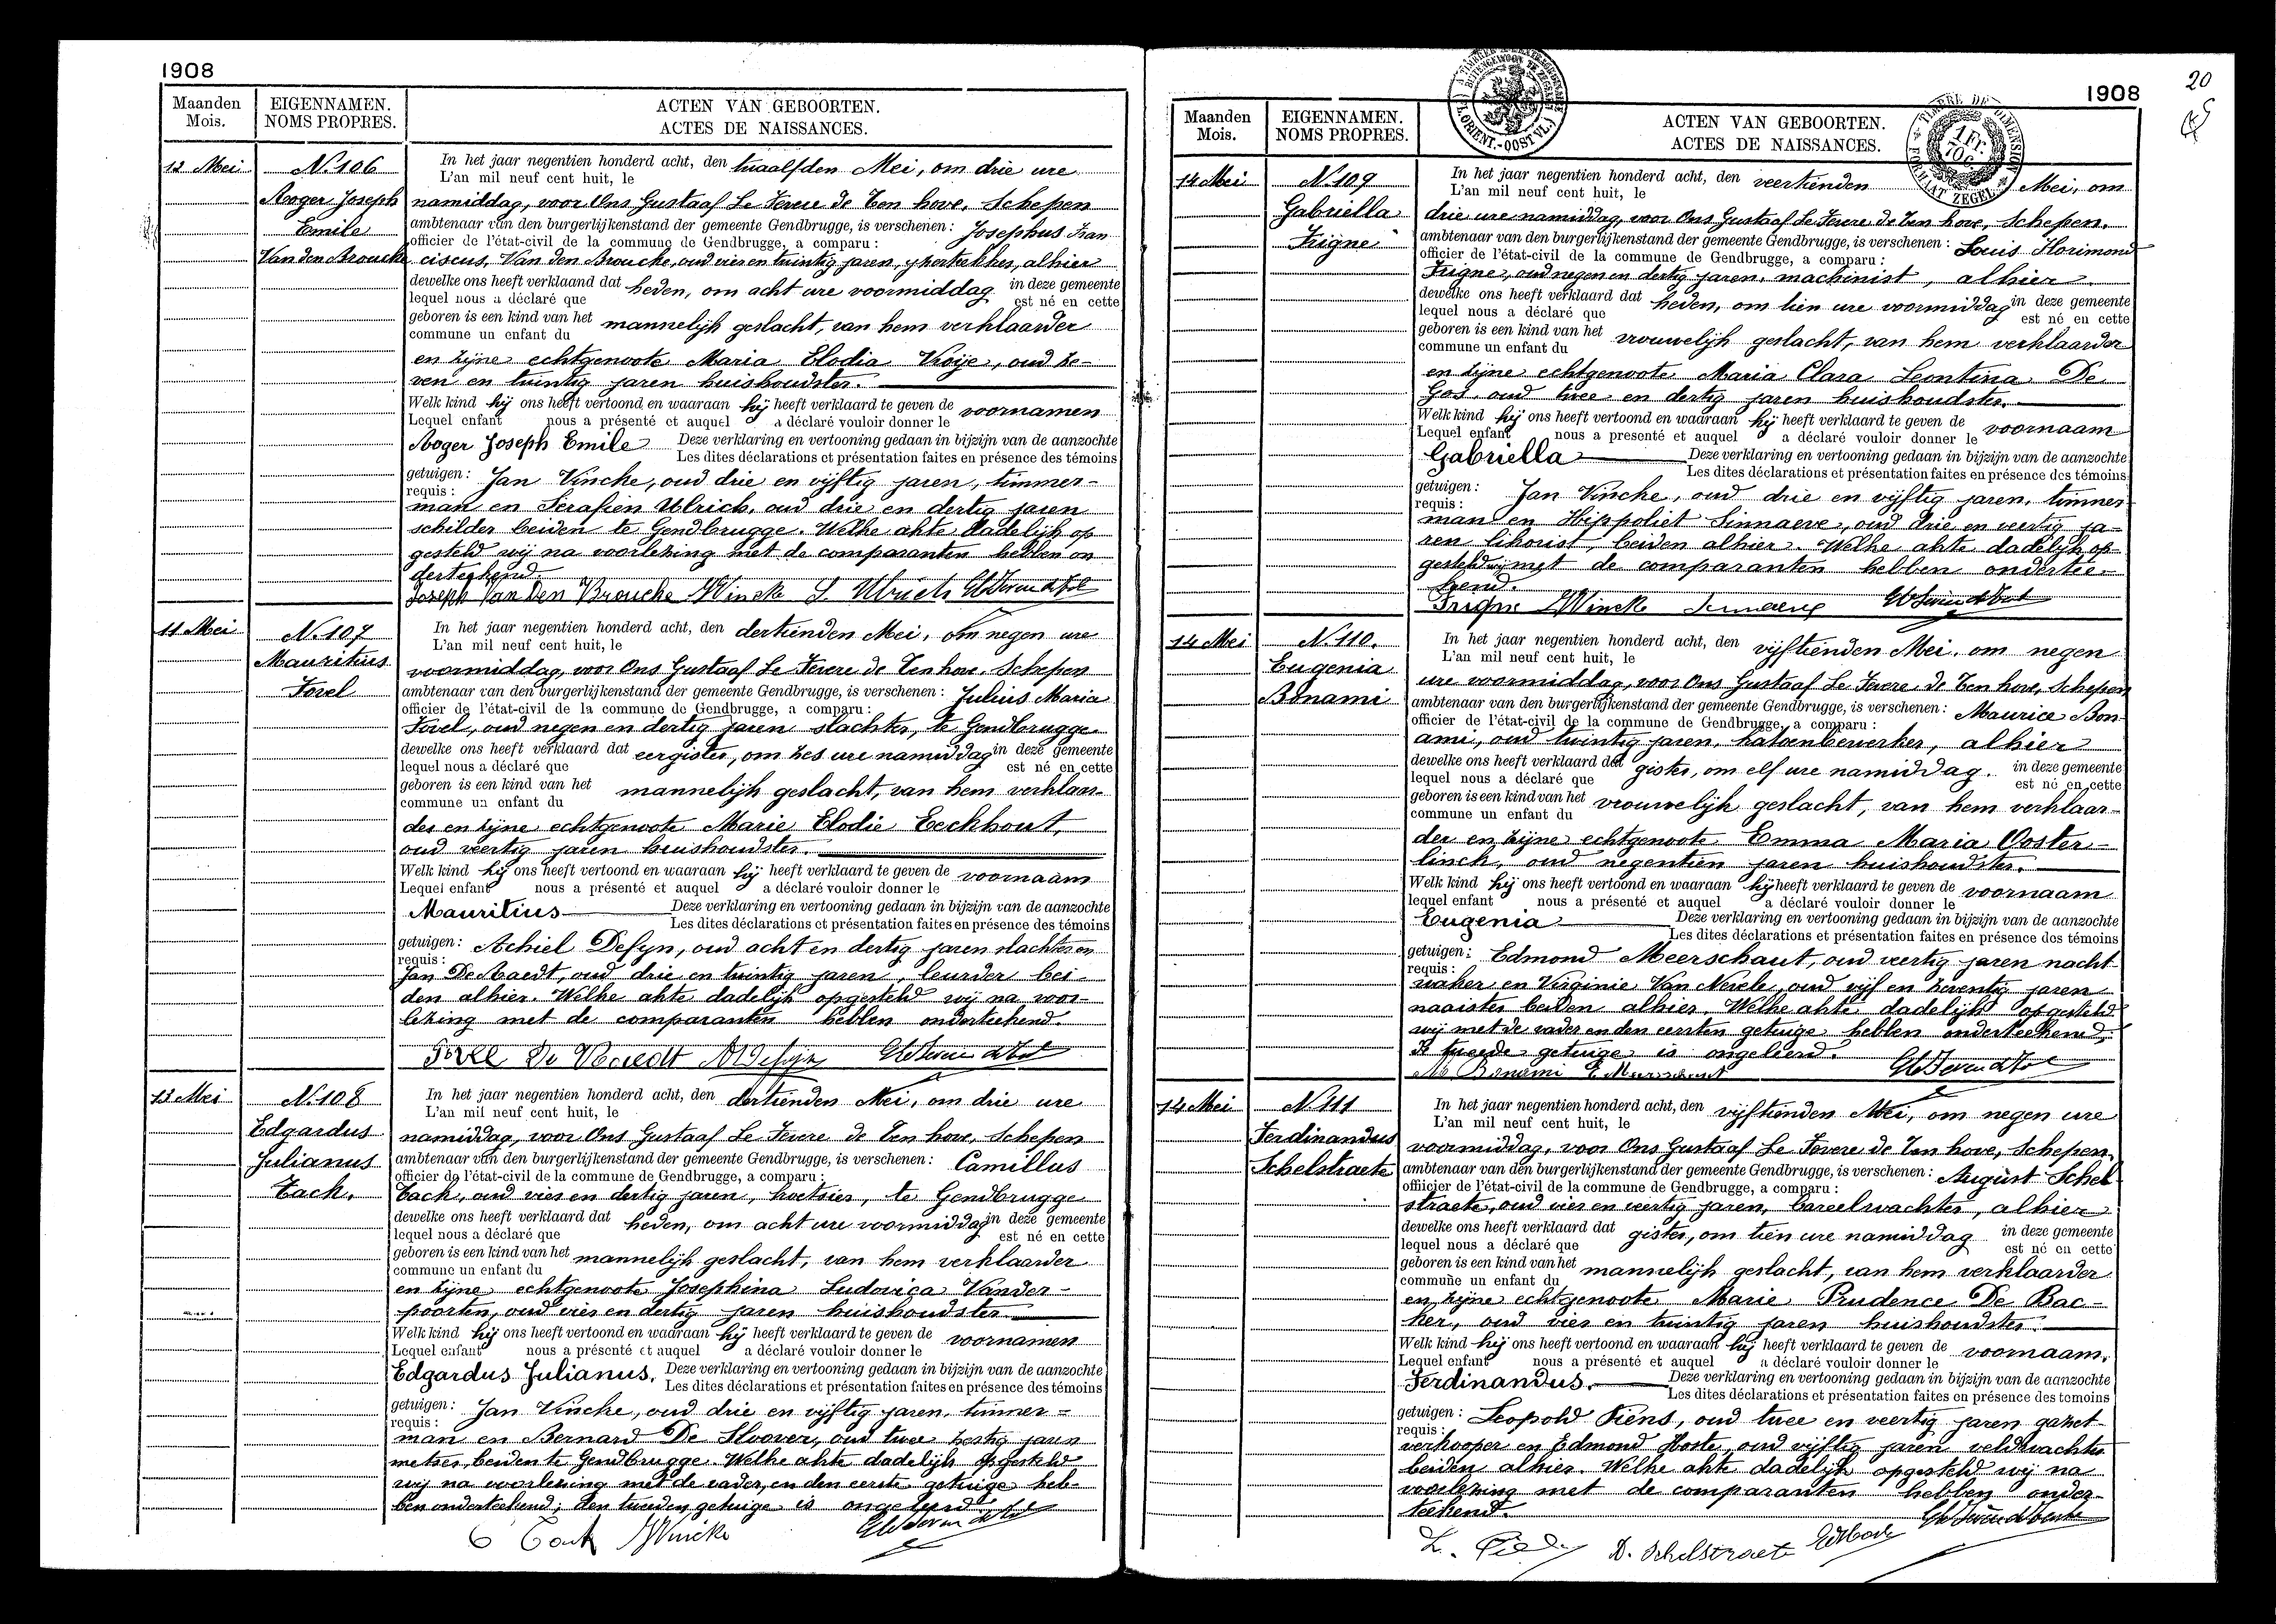 1908
Maanden
Mois.
EIGENNAMEN.
NOMS PROPRES.
ACTEN VAN GEBOORTEN.
ACTES DE NAISSANCES.
12 Mei
N. 106
Roger Joseph
Emile
Van den Broucke
In het jaar negentien honderd acht, den twaalfden Mei, om drie ure
L'an mil neuf cent huit, le
namiddag, voor Ons Gustaaf Le Fevere de Ten hove, Schepen
ambtenaar van den burgerlijkenstand der gemeente Gendbrugge, is verschenen : Josephus Fran
officier de l'état-civil de la commune de Gendbrugge, a comparu :
ciscus, Van den Broucke, oud vier en twintig jaren, alhier
dewelke ons heeft verklaard dat heden, om acht ure voormiddag in deze gemeente
lequel nous a déclaré que est né en cette
geboren is een kind van het mannelijk geslacht, van hem verklaarder
commune un enfant du
en zijne echtgenoote Maria Elodia Vroije, oud ze-
ven en twintig jaren huishoudster.
Welk kind hij ons heeft vertoond en waaraan hij heeft verklaard te geven de voornamen
Lequel enfant nous a présenté et auquel a déclaré vouloir donner le
Roger Joseph Emile Deze verklaring en vertooning gedaan in bijzijn van de aanzochte
Les dites déclarations et présentation faites en présence des témoins
getuigen : Jan Vincke, oud drie en vijftig jaren, timmer-
requis :
man en Serafien Ulrich, oud drie en dertig jaren
schilder beiden te Gendbrugge. Welke akte dadelijk op
gesteld wij na voorlezing met de comparanten hebben on
derteekend.
Joseph Van Den Broucke JVincke S. Ulrich
11 Mei
N. 107
Mauritius
Forel
In het jaar negentien honderd acht, den dertienden Mei, om negen ure
L'an mil neuf cent huit, le
voormiddag, voor Ons Gustaaf Le Fevere de Ten hove, Schepen
ambtenaar van den burgerlijkenstand der gemeente Gendbrugge, is verschenen : Julius Maria
officier de l'état-civil de la commune de Gendbrugge, a comparu :
Forel, oud negen en dertig jaren slachter, te Gendbrugge
dewelke ons heeft verklaard dat eergister, om zes ure namiddag in deze gemeente
lequel nous a déclaré que est né en cette
geboren is een kind van het mannelijk geslacht, van hem verklaar-
commune un enfant du
der en zijne echtgenoote Marie Elodie Eeckhout,
oud veertig jaren huishoudster.
Welk kind hij ons heeft vertoond en waaraan hij heeft verklaard te geven de voornaam
Lequel enfant nous a présenté et auquel a déclaré vouloir donner le
Mauritius Deze verklaring en vertooning gedaan in bijzijn van de aanzochte
Les dites déclarations et présentation faites en présence des témoins
getuigen : Achiel Defijn, oud acht en dertig jaren slachter en
requis :
Jan De Baedt, oud drie en twintig jaren, leurder bei-
den alhier. Welke akte dadelijk opgesteld wij na voor-
lezing met de comparanten hebben onderteekend.
13 Mei
N. 108
Edgardus
Julianus
Tack.
In het jaar negentien honderd acht, den dertienden Mei, om drie ure
L'an mil neuf cent huit, le
namiddag, voor Ons Gustaaf Le Fevere de Ten hove, Schepen
ambtenaar van den burgerlijkenstand der gemeente Gendbrugge, is verschenen : Camillus
officier de l'état-civil de la commune de Gendbrugge, a comparu :
Tack, oud vier en dertig jaren, koetsier, te Gendbrugge
dewelke ons heeft verklaard dat heden, om acht ure voormiddag in deze gemeente
lequel nous a déclaré que est né en cette
geboren is een kind van het mannelijk geslacht, van hem verklaarder
commune un enfant du
en zijne echtgenoote Josephina Ludovica Vander-
poorten, oud vier en dertig jaren huishoudster
Welk kind hij ons heeft vertoond en waaraan hij heeft verklaard te geven de voornamen
Lequel enfant nous a présenté et auquel a déclaré vouloir donner le
Edgardus Julianus. Deze verklaring en vertooning gedaan in bijzijn van de aanzochte
Les dites déclarations et présentation faites en présence des témoins
getuigen : Jan Vincke, oud drie en vijftig jaren, timmer-
requis :
man en Bernard De Sloover, oud twee zestig jaren
metser beiden te Gendbrugge. Welke akte dadelijk opgesteld
wij na voorlezing met de vader, en den eerste getuige heb-
ben onderteekend; den tweeden getuige is ongeleerd.
C Tack JVincke
20
1908
Maanden
Mois.
EIGENNAMEN.
NOMS PROPRES.
ACTEN VAN GEBOORTEN.
ACTES DE NAISSANCES.
14 Mei
N. 109
Gabriella
Frigne
In het jaar negentien honderd acht, den veertienden Mei, om
L'an mil neuf cent huit, le
drie ure namiddag, voor Ons Gustaaf Le Fevere de Ten hove, Schepen.
ambtenaar van den burgerlijkenstand der gemeente Gendbrugge, is verschenen : Louis Florimond
officier de l'état-civil de la commune de Gendbrugge, a comparu :
Frigne, oud negen en dertig jaren, machinist, alhier
dewelke ons heeft verklaard dat heden, om tien ure voormiddag in deze gemeente
lequel nous a déclaré que est né en cette
geboren is een kind van het vrouwelijk geslacht, van hem verklaarder
commune un enfant du
en zijne echtgenoote Maria Clara Leontina De
Gos, oud twee en dertig jaren huishoudster.
Welk kind hij ons heeft vertoond en waaraan hij heeft verklaard te geven de voornaam
Lequel enfant nous a presenté et auquel a déclaré vouloir donner le
Gabriella Deze verklaring en vertooning gedaan in bijzijn van de aanzochte
Les dites déclarations et présentation faites en présence des témoins
getuigen : Jan Vincke, oud drie en vijftig jaren, timmer
requis :
man en Hippoliet Sinnaeve, oud drie en veertig ja-
ren likorist, beiden alhier. Welke akte dadelijk op-
gesteld wij met de comparanten hebben ondertee-
kend.
Frigne JVincke Sinnaeve
14 Mei
N. 110.
Eugenia
Bonami
In het jaar negentien honderd acht, den vijftienden Mei, om negen
L'an mil neuf cent huit, le
ure voormiddag, voor Ons Gustaaf Le Fevere de Ten hove, Schepen
ambtenaar van den burgerlijkenstand der gemeente Gendbrugge, is verschenen : Maurice Bon-
officier de l'état-civil de la commune de Gendbrugge, a comparu :
ami, oud twintig jaren, katoenbewerker, alhier
dewelke ons heeft verklaard dat gister, om elf ure namiddag. in deze gemeente
lequel nous a déclaré que est né en cette
geboren is een kind van het vrouwelijk geslacht, van hem verklaar-
commune un enfant du
der en zijne echtgenoote Emma Maria Ooster-
linck, oud negentien jaren huishoudster.
Welk kind hij ons heeft vertoond en waaraan hij heeft verklaard te geven de voornaam
lequel enfant nous a présenté et auquel a déclaré vouloir donner le
Eugenia Deze verklaring en vertooning gedaan in bijzijn van de aanzochte
Les dites déclarations et présentation faites en présence des témoins
getuigen : Edmond Meerschaut, oud veertig jaren nacht-
requis :
waker en Virginie Van Nevele, oud vijf en zeventig jaren
naaister beiden alhier. Welke akte dadelijk opgesteld
wij met de vader en den eersten getuige hebben onderteekend;
tweede getuige is ongeleerd.
Bonami E Meerschaut
14 Mei
N. 111
Ferdinandus
Schelstraete
In het jaar negentien honderd acht, den vijftienden Mei, om negen ure
L'an mil neuf cent huit, le
voormiddag, voor Ons Gustaaf Le Fevere de Ten hove, Schepen,
ambtenaar van den burgerlijkenstand der gemeente Gendbrugge, is verschenen : August Schel
officier de l'état-civil de la commune de Gendbrugge, a comparu :
straete, oud vier en veertig jaren, bareelwachter, alhier
dewelke ons heeft verklaard dat gister, om tien ure namiddag in deze gemeente
lequel nous a déclaré que est né en cette
geboren is een kind van het mannelijk geslacht, van hem verklaarder
commune un enfant du
en zijne echtgenoote Marie Prudence De Bac-
ker, oud vier en twintig jaren huishoudster.
Welk kind hij ons heeft vertoond en waaraan hij heeft verklaard te geven de voornaam.
Lequel enfant nous a présenté et auquel a déclaré vouloir donner le
Ferdinandus. Deze verklaring en vertooning gedaan in bijzijn van de aanzochte
Les dites déclarations et présentation faites en présence des temoins
getuigen : Leopold Piens, oud twee en veertig jaren gazet-
requis :
verkooper en Edmond Hoste, oud vijftig jaren veldwachter
beiden alhier. Welke akte dadelijk opgesteld wij na
voorlezing met de comparanten hebben onder-
teekend.